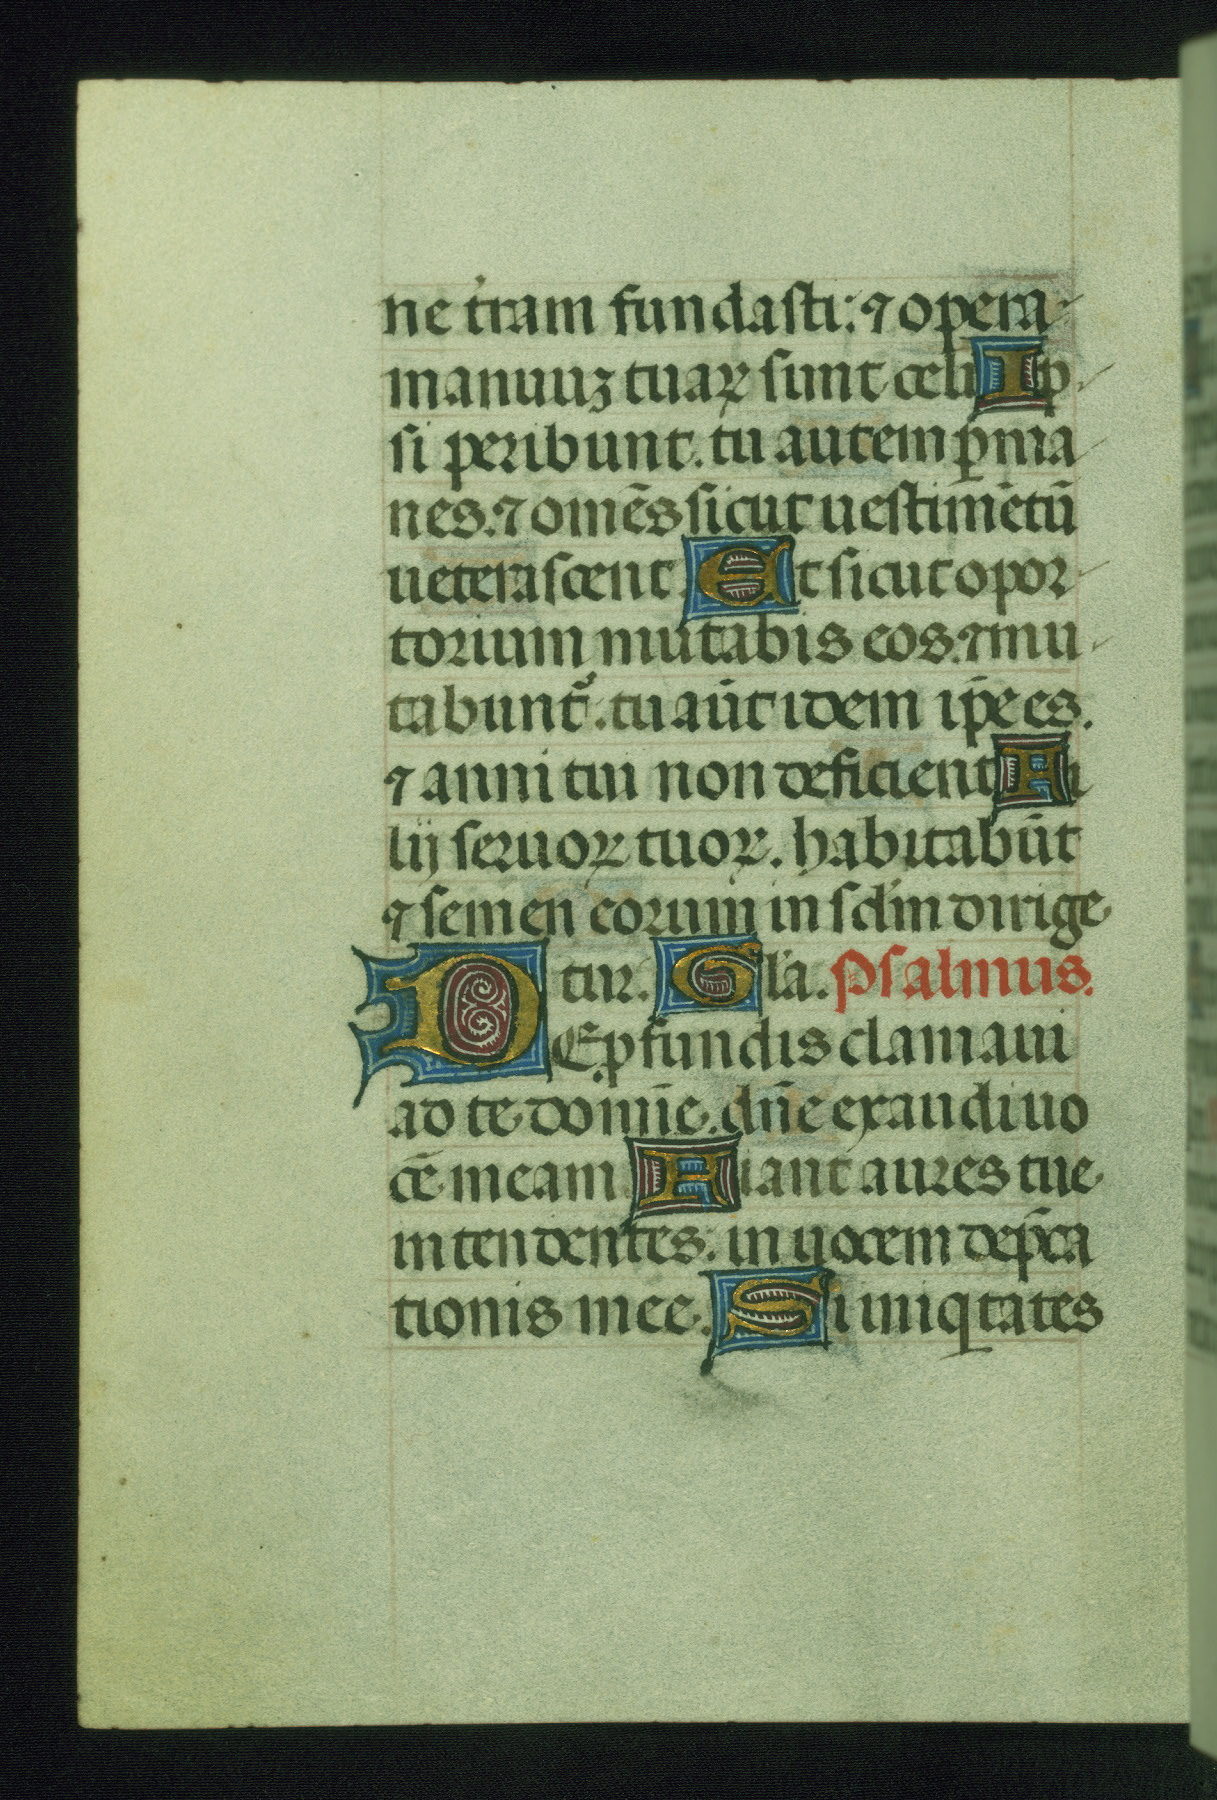 ne t̃ram fundasti: ⁊ opera
manuuꝫ tuaꝝ sunt celi Ip
si peribunt. tu autem ꝑma
nes. ⁊ om̃es sicut uestimẽtũ
ueterascent. Et sicut opor
torium mutabis eos. ⁊ mu
tabunt᷑. tu aũt idem ip̃e es.
⁊ anni tui non deficient Fi
lij seruoꝝ tuoꝝ. habitabũt
⁊ semen eorum in sc̃lm dirige
tur. Gl̃a. Psalmus.
DE ꝓfundis clamaui
ad te domĩe. dñe exaudi uo
cẽ meam Fiant aures tue
intendentes. in uocem dep̃ca
tionis mee. Si iniqͥtates